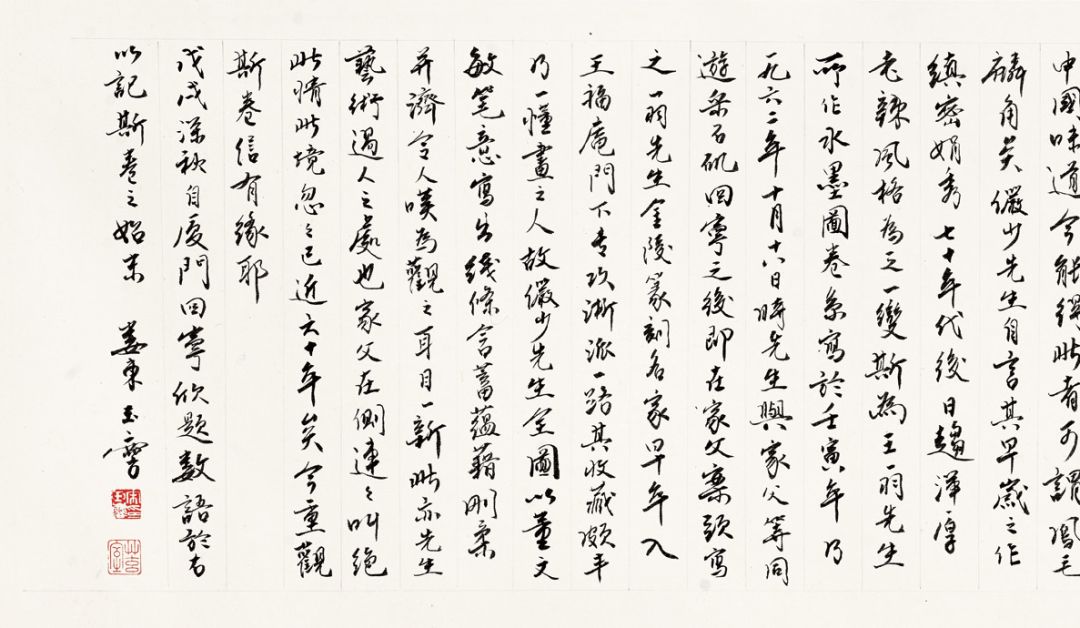 中國味道今能得此者可謂鳳毛
麟角矣儼少先生自言其早歲之作
縝密娟秀七十年代後日趨渾厚
老辣風格為之一變斯為王一羽先生
所作水墨圖卷系寫於壬寅年乃
一九六二年十月十八日時先生與家父等同
遊采石磯回寧之後即在家父案頭寫
之一羽先生金陵篆刻名家早年入
王福庵門下專攻浙派一路其收藏頗丰
乃一懂畫之人故儼少先生全圖以董文
敏笔意寫出綫條含蓄蘊藉刚柔
并濟令人嘆為觀之耳目一新此亦先生
藝術過人之處也家父在側連々叫絕
此情此境忽々已近六十年矣今重觀
斯卷信有緣耶
戊戌深秋自廈門回寧欣題數語於右
以記斯卷之始末 娄東玉